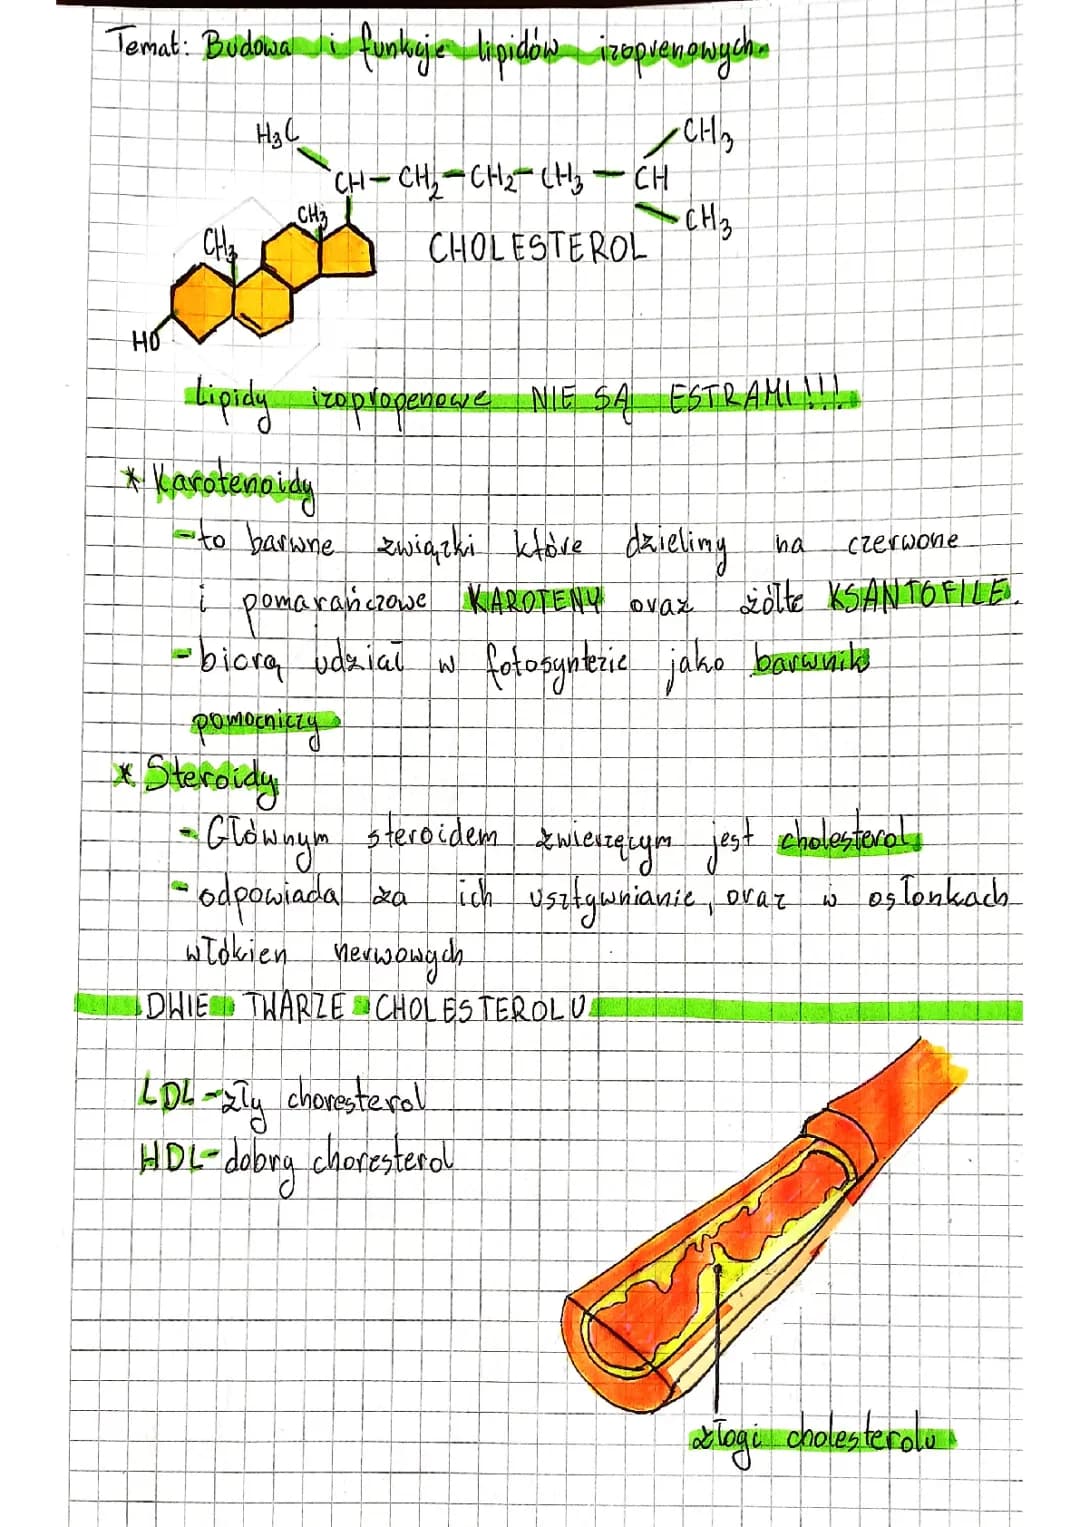 Temat: Budowa i funkcje lipidów izoprenowych.
H3C
CH3
CH-CH2-CH2-CH3-CH
CH3
CH3
CH3
CHOLESTEROL
HO
Lipidy izopropenowe NIE SĄ ESTRAMI!!!
* Karotenoidy
-to barwne związki które dzielimy na czerwone
i pomarańczowe KAROTENY oraz żółte KSANTOFILE.
-biorą udział w fotosyntezie jako barwnik
pomocniczy
* Steroidy
-Głównym steroidem zwierzęcym jest cholesterol
-odpowiada za ich usztywnianie, oraz w osłonkach
włókien nerwowych
DWIE TWARZE CHOLESTEROLU
LDL-zły choresterol
HDL-dobry choresterol
złogi cholesterolu